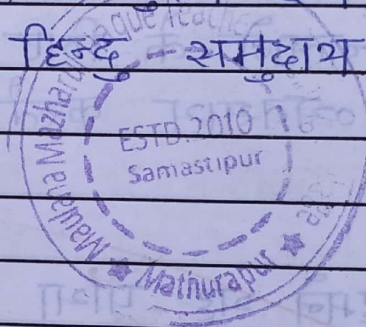 हिन्दु - समुदाय
Maulana Mazharul Haque Teache
ESTD. 2010
Samastipur
Mathurapur